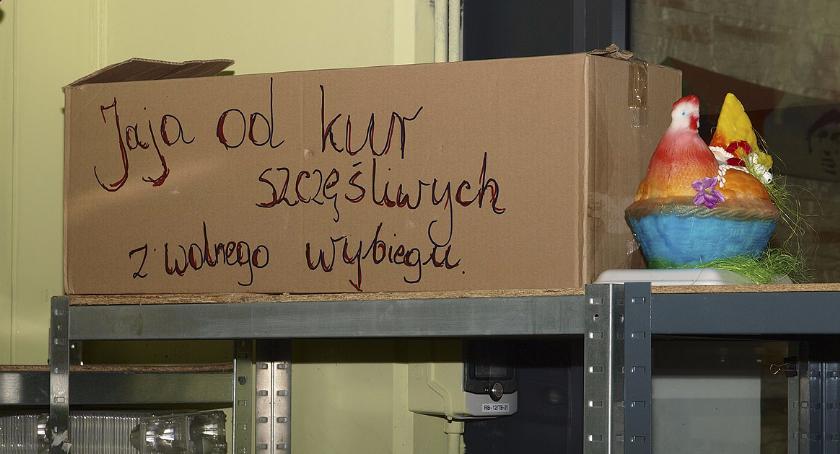 Jaja od kur
szczęśliwych
z wolnego wybiegu.